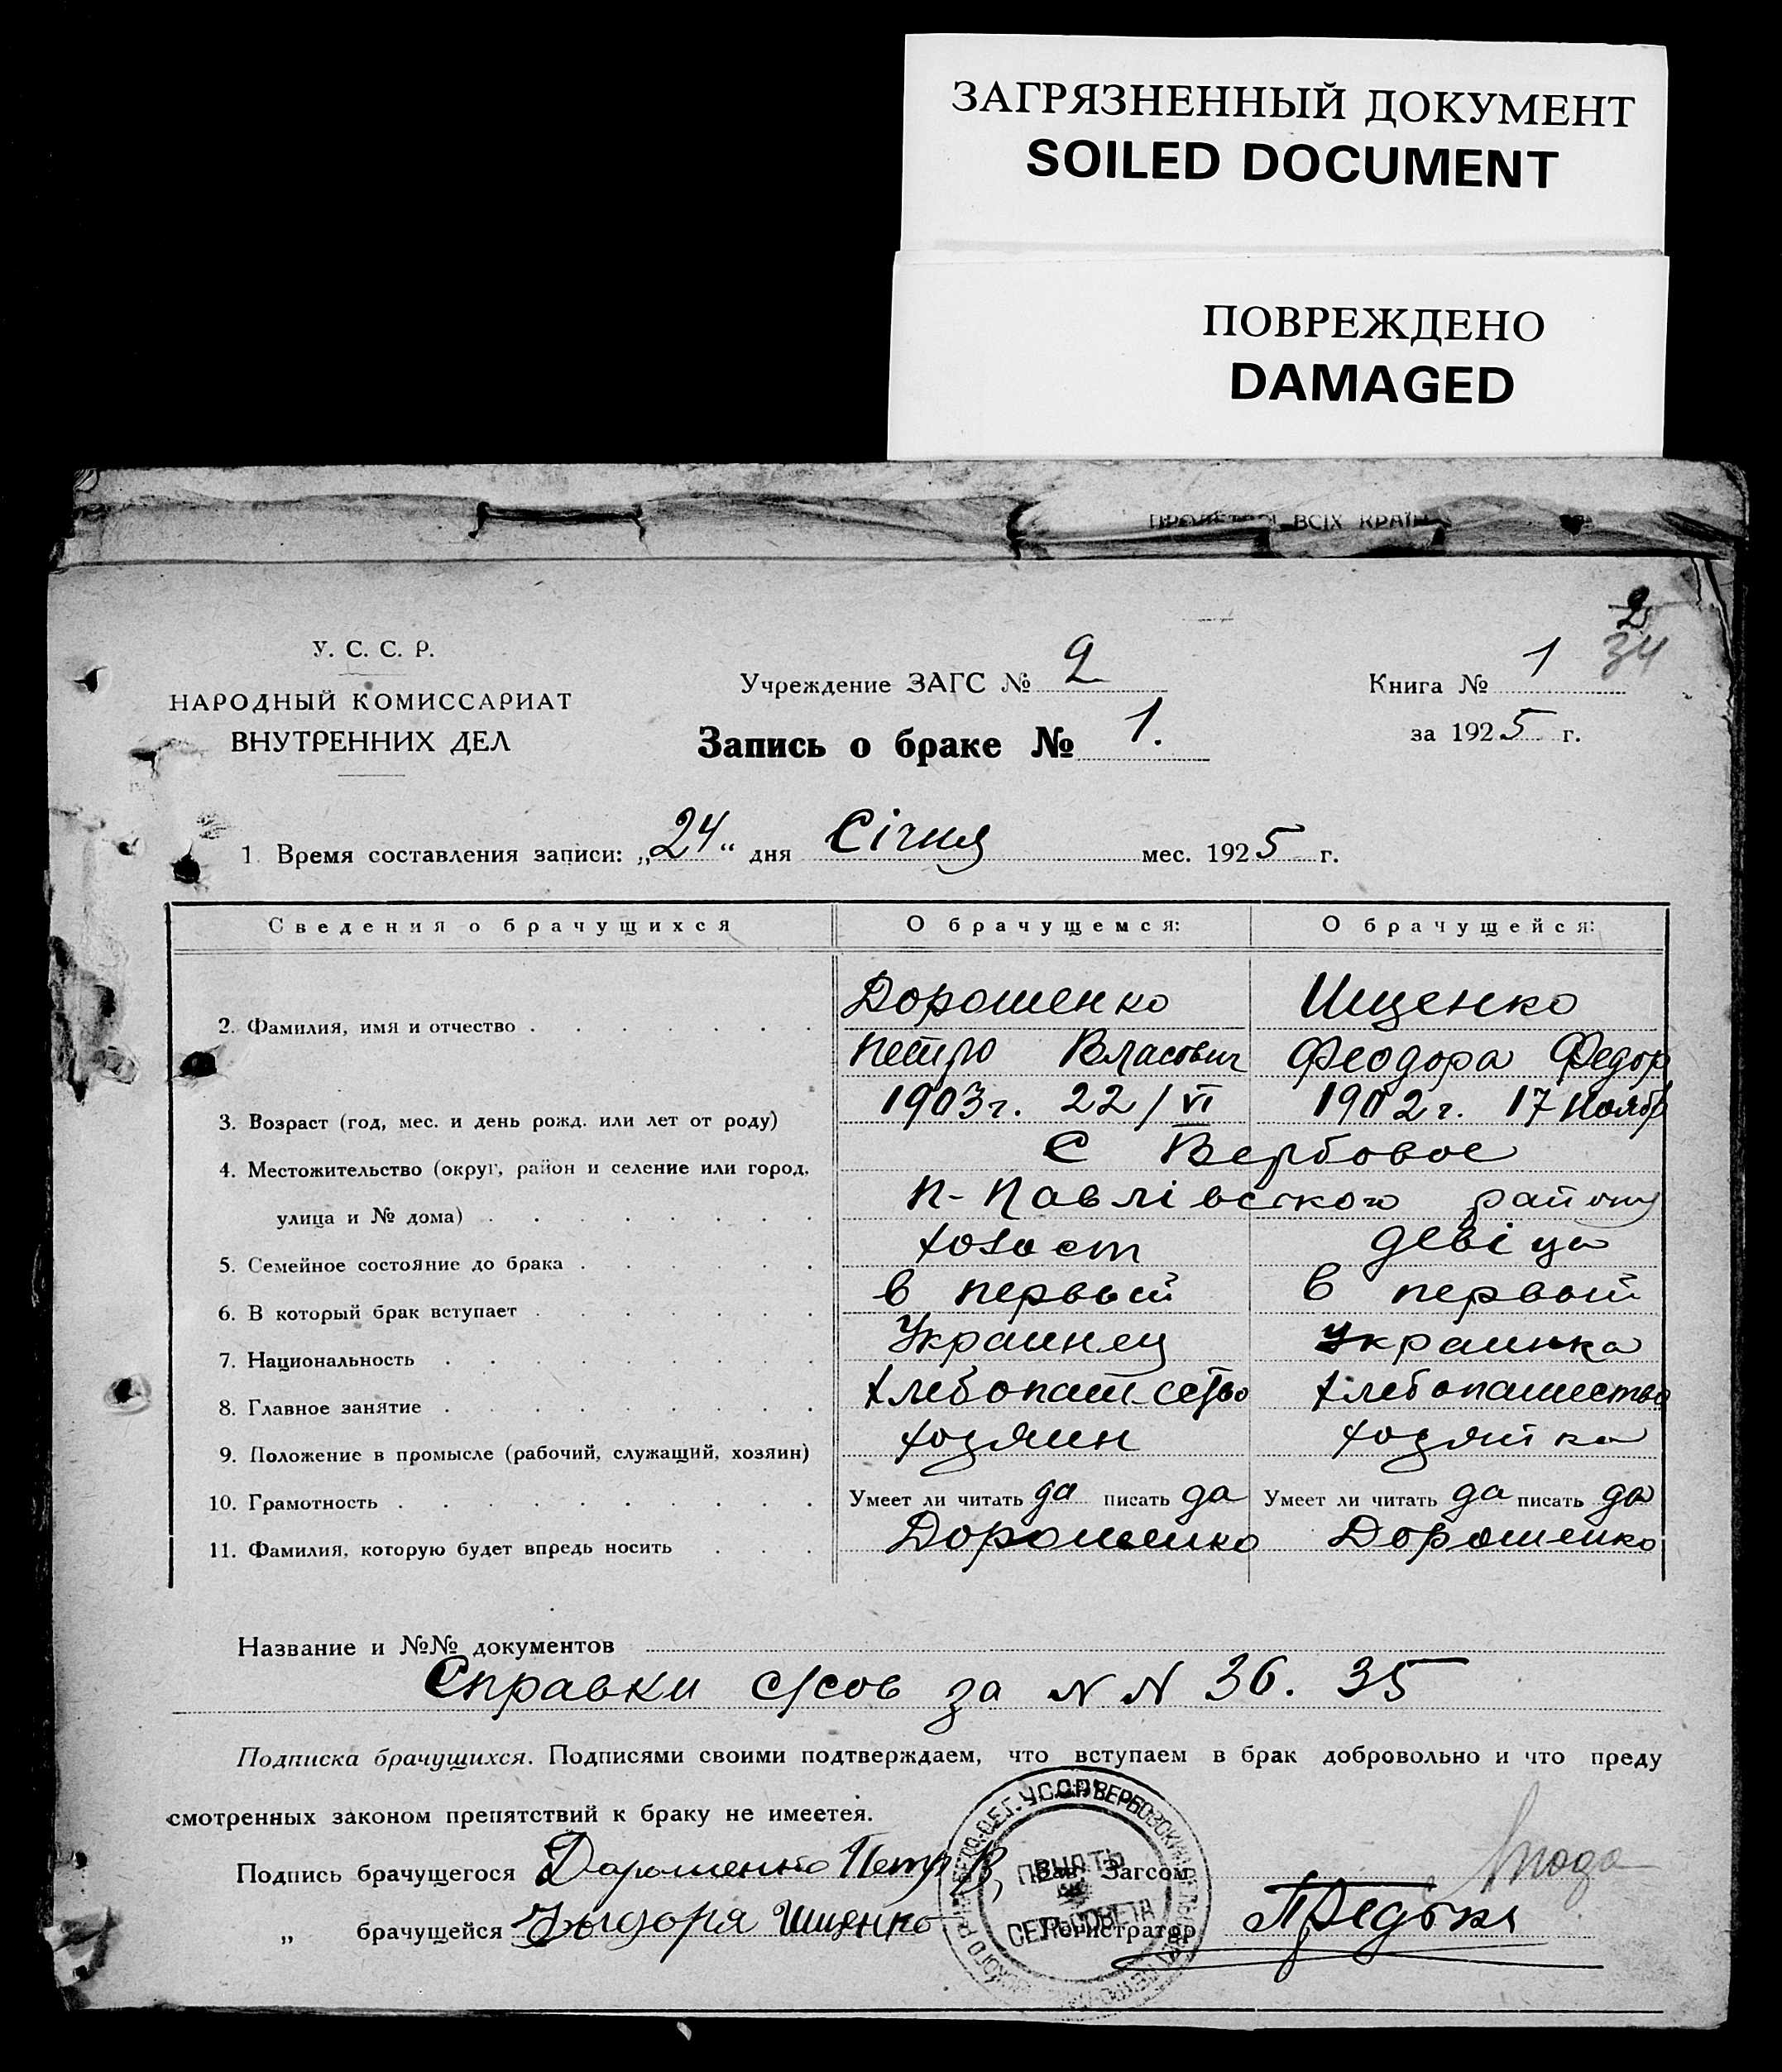 ЗАГРЯЗНЕННЫЙ ДОКУМЕНТ
SOILED DOCUMENT
ПОВРЕЖДЕНО
DAMAGED
ВСІХ КРАЇН
2
34
У. С. С. Р.
НАРОДНЫЙ КОМИССАРИАТ
ВНУТРЕННИХ ДЕЛ
Учреждение ЗАГС № 2
Книга № 1
Запись о браке № 1.
за 1925 г.
1. Время составления записи: „24“ дня Січня мес. 1925 г.
Сведения о брачущихся О брачущемся: О брачущейся:
2. Фамилия, имя и отчество Дорошенко Ищенко
Петро Власович Феодора Федор
3. Возраст (год, мес. и день рожд. или лет от роду) 1903 г. 22/VI 1902 г. 17 Ноябр
4. Местожительство (округ, район и селение или город, С Вербовое
улица и № дома) П-Павлівского району
5. Семейное состояние до брака холост девіца
6. В который брак вступает в первый в первый
7. Национальность Украинец Украинка
8. Главное занятие хлебопашество хлебопашество
9. Положение в промысле (рабочий, служащий, хозяин) хозяин хозяйка
10. Грамотность Умеет ли читать да писать да Умеет ли читать да писать да
11. Фамилия, которую будет впредь носить Дорошенко Дорошенко
Название и №№ документов
Справки с/сов за N N 36. 35
Подписка брачущихся. Подписями своими подтверждаем, что вступаем в брак добровольно и что преду
смотренных законом препятствий к браку не имеетея.
Подпись брачущегося Дарошенко Петр В, Зав. Загсом
„ брачущейся Ищенко Регистратор
ПЕЧАТЬ
СЕЛЬСОВЕТА